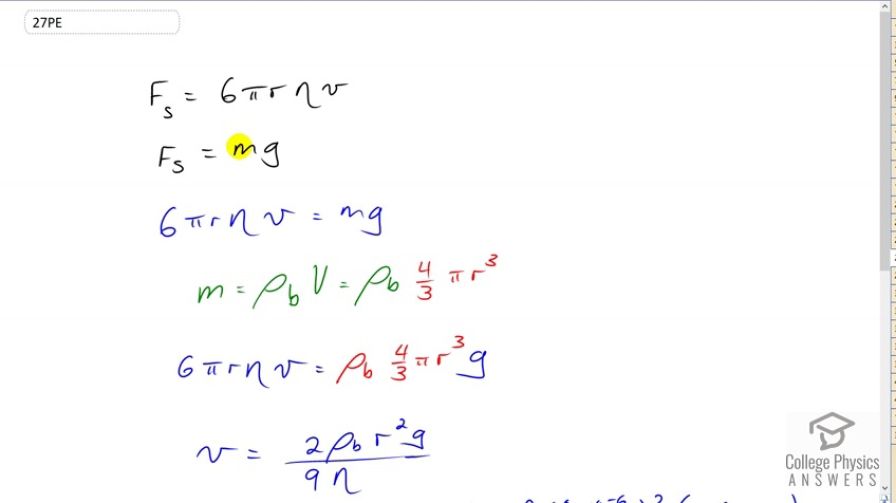 27PE
F_s = 6πrηv
F_s = mg
6πrηv = mg
m = ρ_b V = ρ_b 4/3 πr³
6πrηv = ρ_b 4/3 πr³g
v = 2ρ_b r²g / 9η
College Physics
ANSWERS